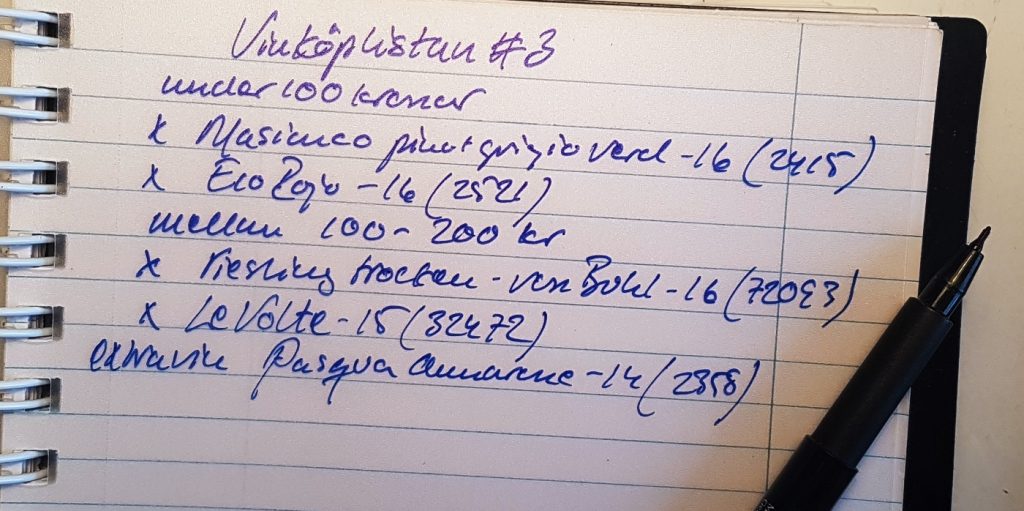 Vinköplistan #3
under 100 kronor
x Masianco pinot grigio verd - 16 (2415)
x Eco Rojo - 16 (2521)
mellan 100 - 200 kr
x riesling trocken - von Buhl - 16 (72093)
x Le Volte - 15 (32472)
extra vin Pasqua - 14 (2358)